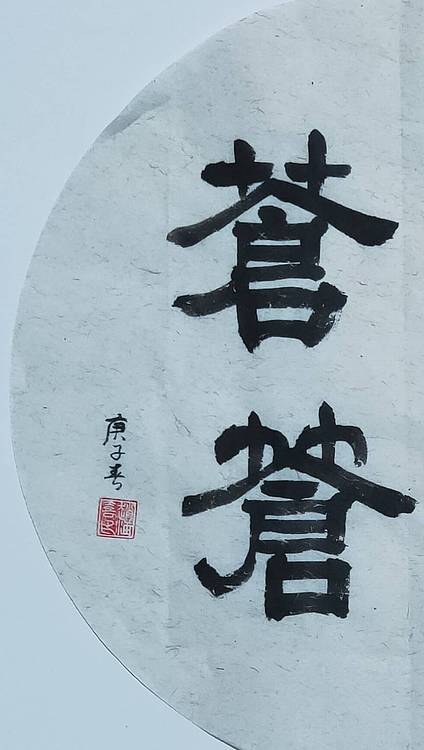 蒼蒼
庚子春